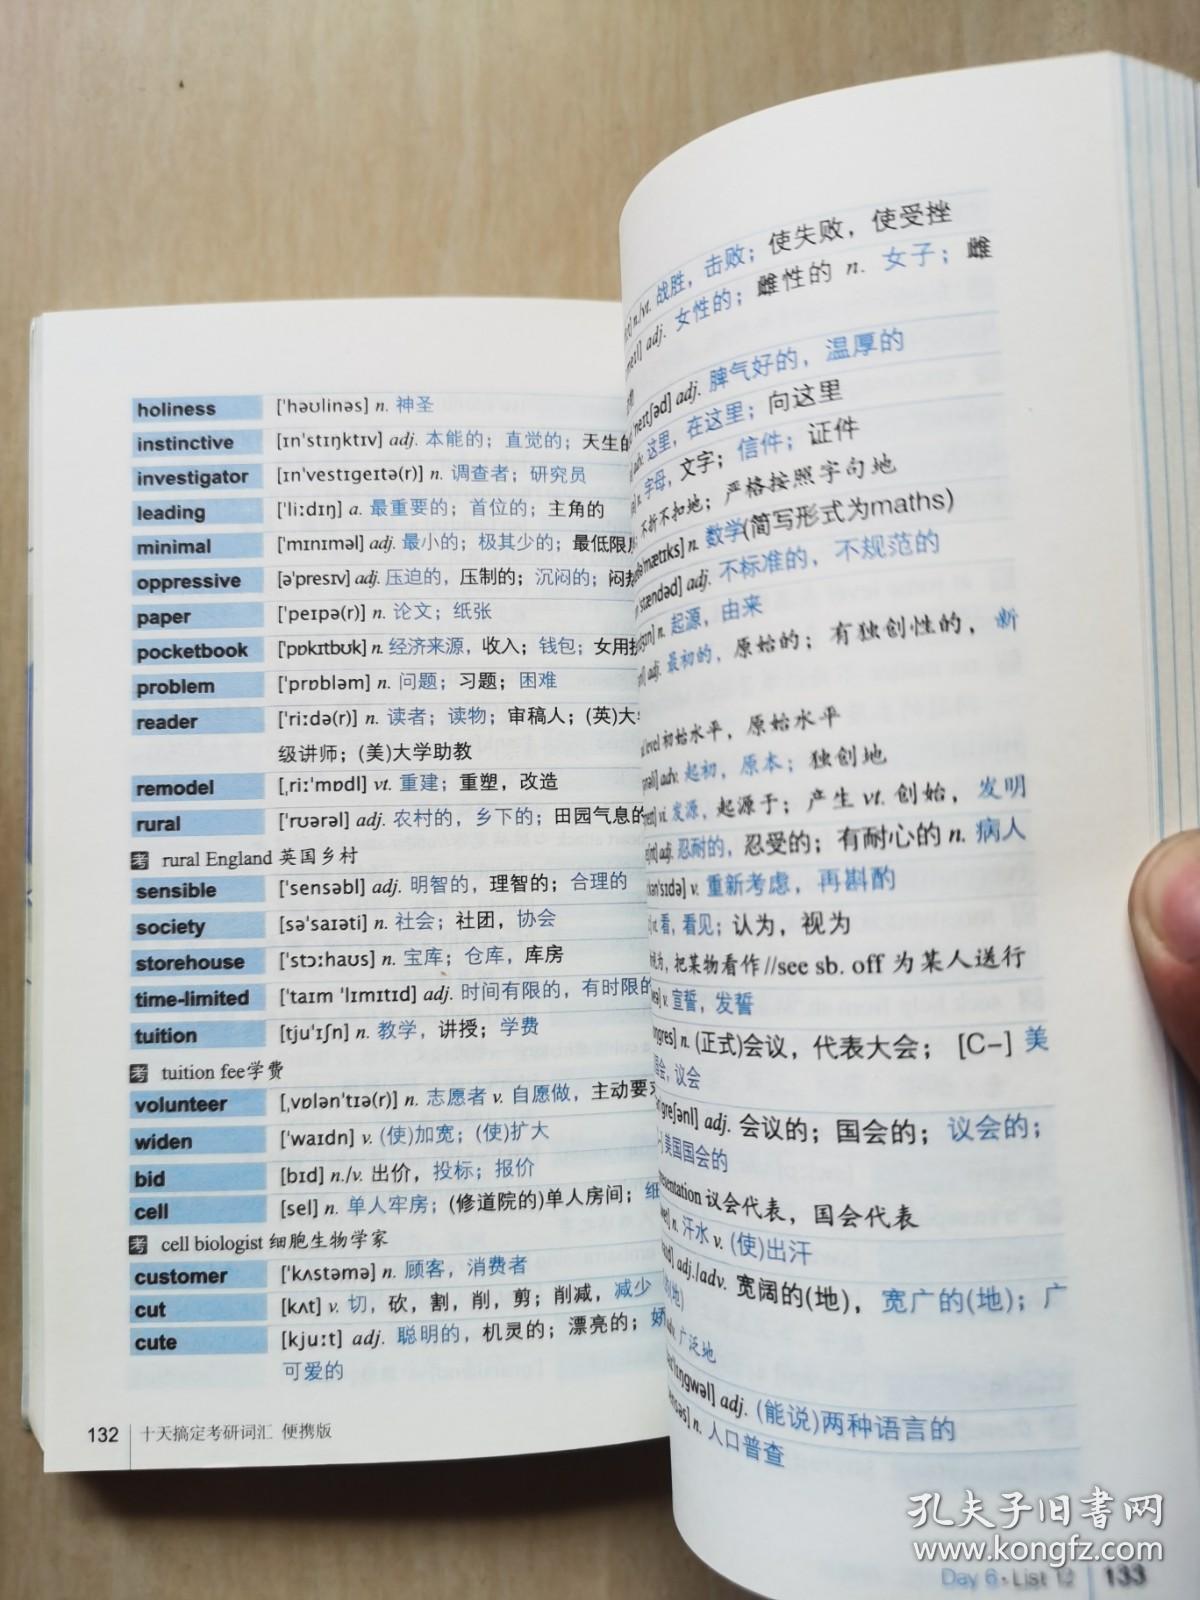 holiness ['həʊlinəs] n. 神圣
instinctive [ɪn'stɪŋktɪv] adj. 本能的；直觉的；天生的
investigator [ɪn'vestɪgeɪtə(r)] n. 调查者；研究员
leading ['liːdɪŋ] a. 最重要的；首位的；主角的
minimal ['mɪnɪməl] adj. 最小的；极其少的；最低限
oppressive [ə'presɪv] adj. 压迫的，压制的；沉闷的；闷
paper ['peɪpə(r)] n. 论文；纸张
pocketbook ['pɒkɪtbʊk] n. 经济来源，收入；钱包；女用
problem ['prɒbləm] n. 问题；习题；困难
reader ['riːdə(r)] n. 读者；读物；审稿人；(英)大
级讲师；(美)大学助教
remodel [ˌriː'mɒdl] vt. 重建；重塑，改造
rural ['rʊərəl] adj. 农村的，乡下的；田园气息的
考 rural England 英国乡村
sensible ['sensəbl] adj. 明智的，理智的；合理的
society [sə'saɪəti] n. 社会；社团，协会
storehouse ['stɔːhaʊs] n. 宝库；仓库，库房
time-limited ['taɪm 'lɪmɪtɪd] adj. 时间有限的，有时限的
tuition [tju'ɪʃn] n. 教学，讲授；学费
考 tuition fee学费
volunteer [ˌvɒlən'tɪə(r)] n. 志愿者 v. 自愿做，主动要
widen ['waɪdn] v. (使)加宽；(使)扩大
bid [bɪd] n./v. 出价，投标；报价
cell [sel] n. 单人牢房；(修道院的)单人房间；纸
考 cell biologist 细胞生物学家
customer ['kʌstəmə] n. 顾客，消费者
cut [kʌt] v. 切，砍，割，削，剪；削减，减少
cute [kjuːt] adj. 聪明的，机灵的；漂亮的；娇
可爱的
132 十天搞定考研词汇 便携版
n./vt. 战胜，击败；使失败，使受挫
adj. 女性的；雌性的 n. 女子；雌
'neɪtʃəd] adj. 脾气好的，温厚的
adv. 这里，在这里；向这里
n. 字母，文字；信件；证件
不折不扣地；严格按照字句地
'mætɪks] n. 数学(简写形式为maths)
'stændəd] adj. 不标准的，不规范的
n. 起源，由来
adj. 最初的，原始的；有独创性的，新
level 初始水平，原始水平
adv. 起初，原本；独创地
vi. 发源，起源于；产生 vt. 创始，发明
adj. 忍耐的，忍受的；有耐心的 n. 病人
'sɪdə] v. 重新考虑，再斟酌
vt. 看，看见；认为，视为
视为，把某物看作//see sb. off 为某人送行
v. 宣誓，发誓
n. (正式)会议，代表大会；[C-] 美
国会，议会
'greʃənl] adj. 会议的；国会的；议会的；
美国国会的
议会代表，国会代表
n. 汗水 v. (使)出汗
adj./adv. 宽阔的(地)，宽广的(地)；广
的(地)
广泛地
'lɪŋgwəl] adj. (能说)两种语言的
n. 人口普查
Day 6 · List 12 133
孔夫子旧书网
www.kongfz.com